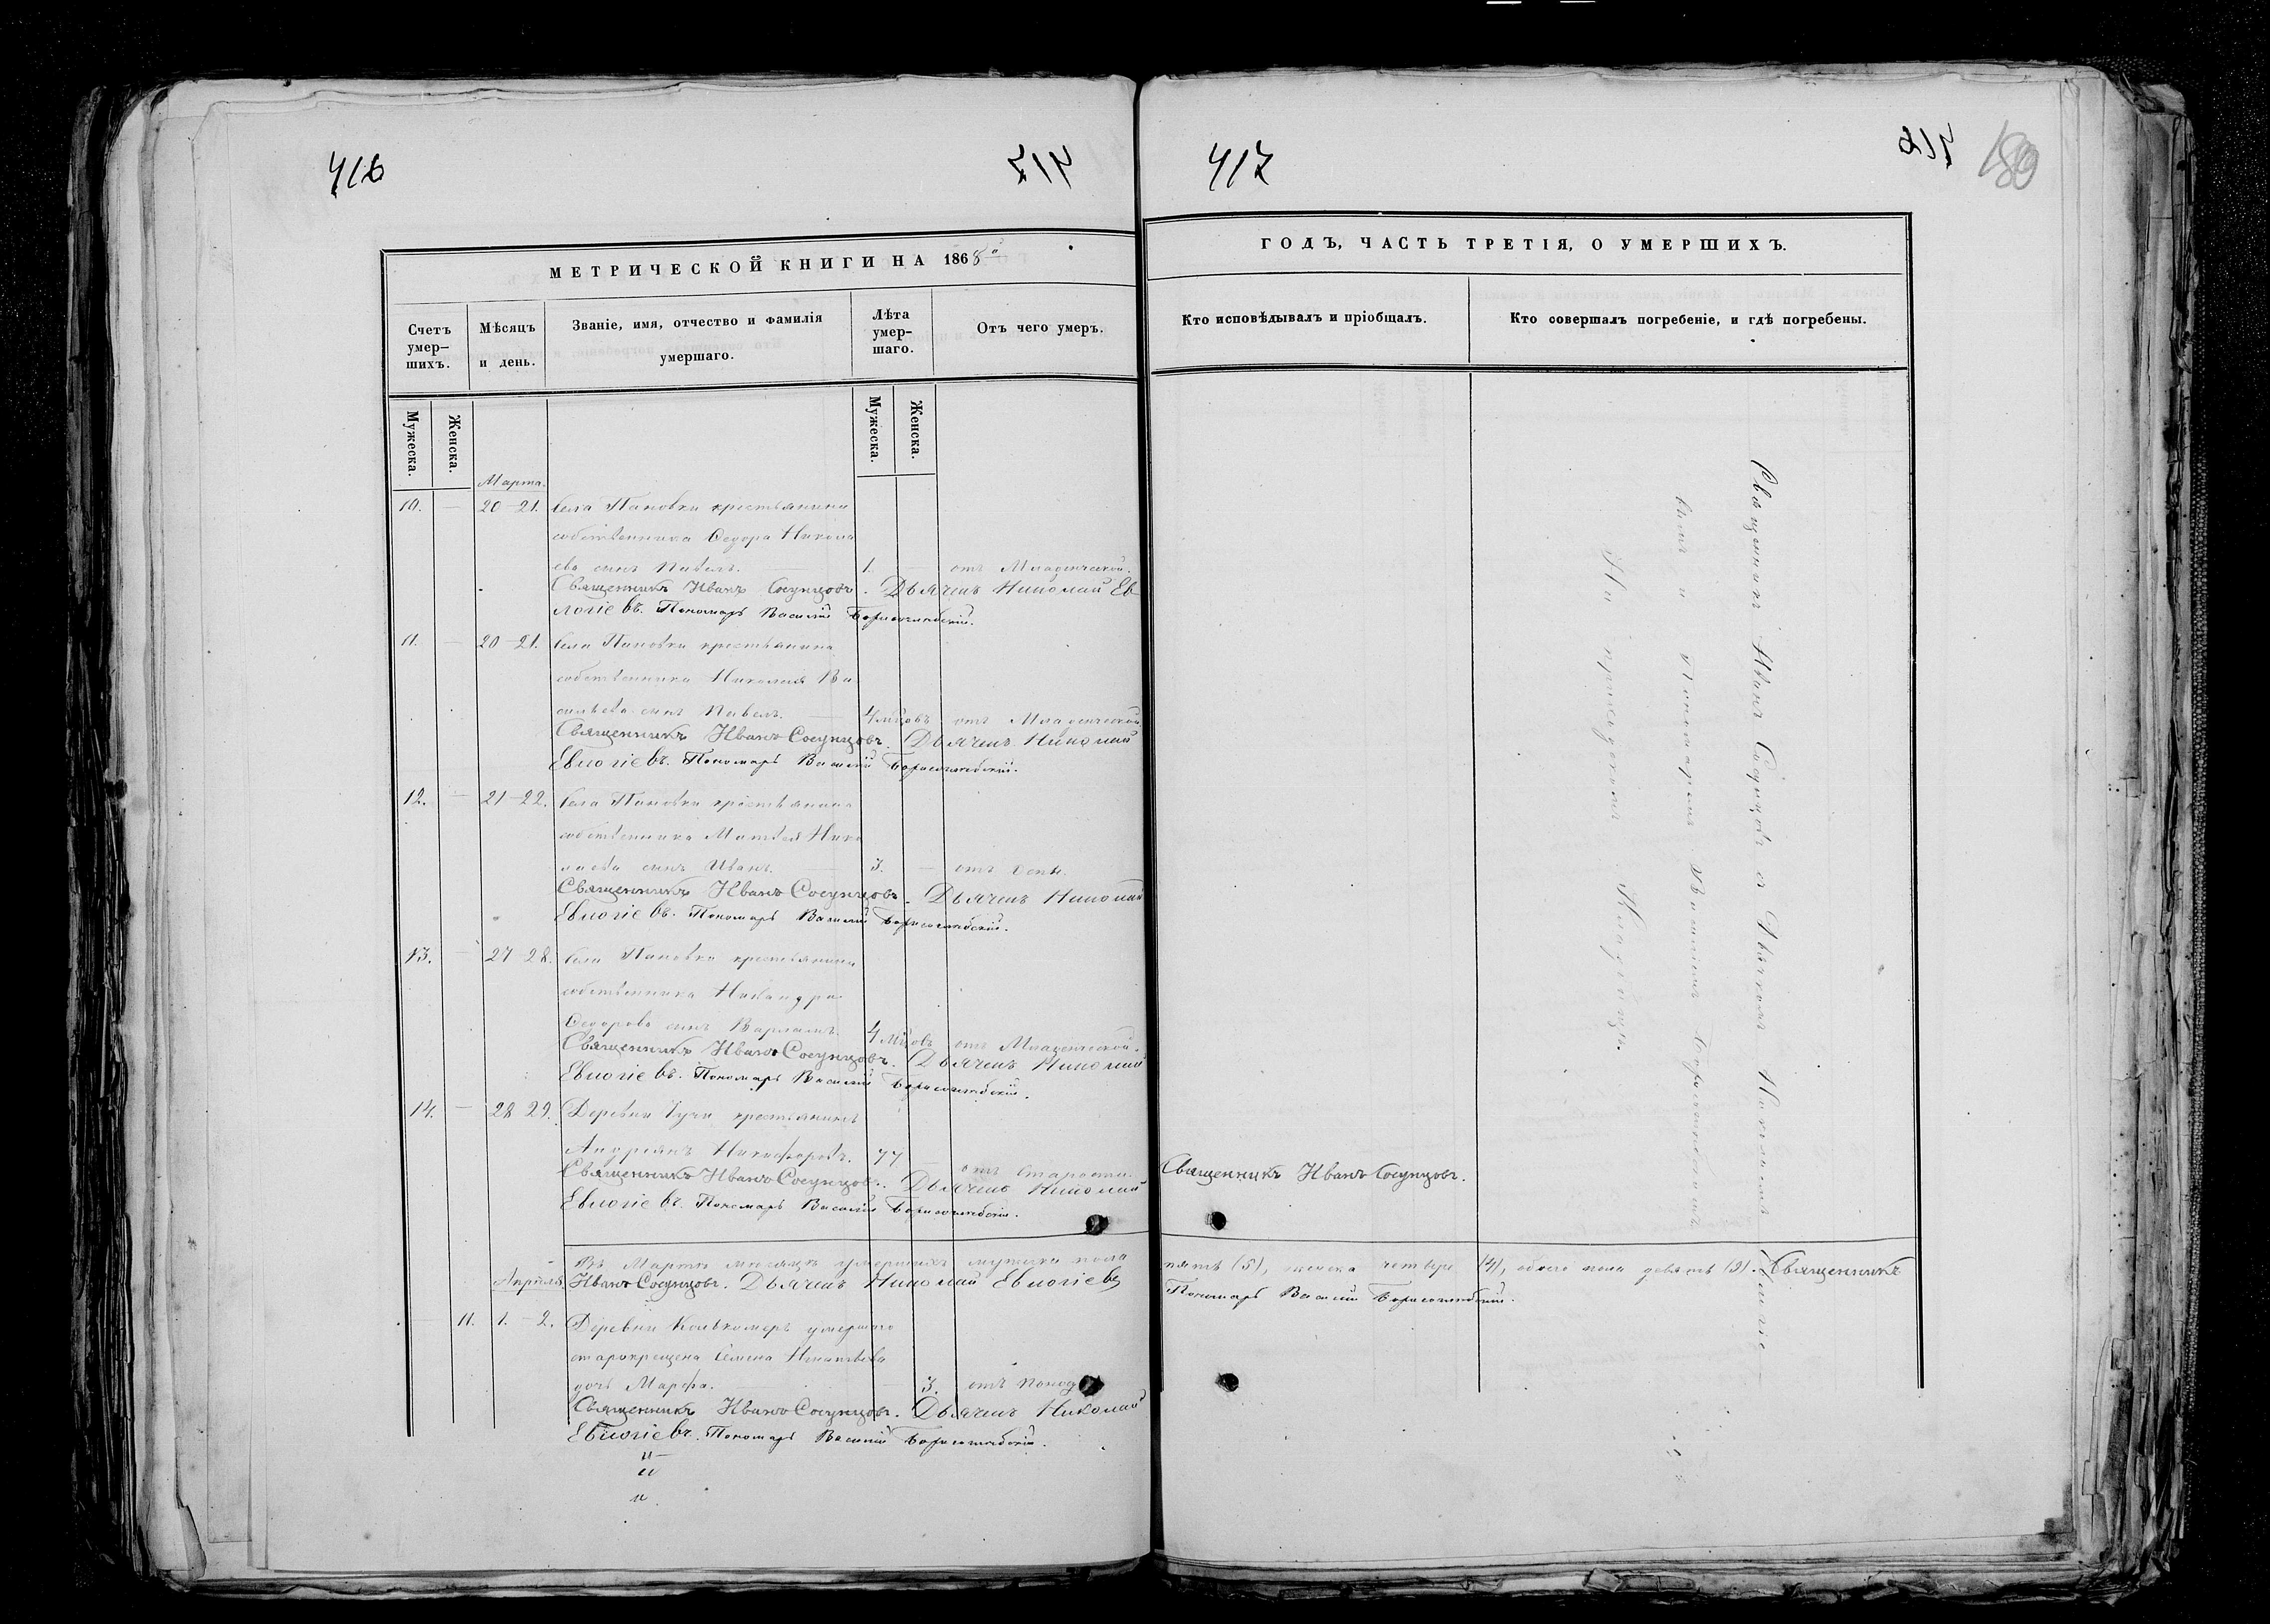 416
417
МЕТРИЧЕСКОЙ КНИГИ НА 1868й
Счетъ умер-шихъ.
Мужеска.
Женска.
Мѣсяцъ и день.
Званіе, имя, отчество и фамилія умершаго.
Лѣта умер-шаго.
Мужеска.
Женска.
Отъ чего умеръ.
Марта.
10. — 20–21. Села Пановки крестьянина
собственника Ѳедора Никола
ева сынъ Павелъ. 1. — отъ Младенческой.
Священникъ Иванъ Сосунцовъ. Дьячекъ Николай Ев
логіевъ. Пономарь Василій Борисоглѣбскій.
11. — 20–21. Села Пановки крестьянина
собственника Николая Ва
сильева сынъ Павелъ. — 4 мцовъ отъ Младенческой
Священникъ Иванъ Сосунцовъ. Дьячекъ Николай
Евлогіевъ. Пономарь Василій Борисоглѣбскій.
12. — 21–22. Села Пановки крестьянина
собственника Матвея Нико
лаева сынъ Иванъ. 3. — отъ Оспы.
Священникъ Иванъ Сосунцовъ. Дьячекъ Николай
Евлогіевъ. Пономарь Василій Борисоглѣбскій.
13. — 27–28. Села Пановки крестьянина
собственника
Ѳедорова сынъ 4 мцовъ отъ Младенческой.
Священникъ Иванъ Сосунцовъ. Дьячекъ Николай
Евлогіевъ. Пономарь Василій Борисоглѣбскій.
14. — 28 29. Деревни крестьянинъ
Андріянъ Никифоровъ. 77 отъ Старости.
Священникъ Иванъ Сосунцовъ. Дьячекъ Николай
Евлогіевъ. Пономарь Василій Борисоглѣбскій.
Въ Мартѣ мѣсяцѣ умершихъ мужска пола
Апрѣля. Иванъ Сосунцовъ. Дьячекъ Николай Евлогіевъ
— 11. 1.–2. Деревни умершаго
старокрещена Семена Игнатьева
дочь Марѳа. — 3. отъ
Священникъ Иванъ Сосунцовъ. Дьячекъ Николай
Евлогіевъ. Пономарь Василій Борисоглѣбскій.
417
416
189
ГОДЪ, ЧАСТЬ ТРЕТІЯ, О УМЕРШИХЪ.
Кто исповѣдывалъ и пріобщалъ.
Кто совершалъ погребеніе, и гдѣ погребены.
Священникъ Иванъ Сосунцовъ съ Дьячкомъ Николаемъ Евлогіе
вымъ и Пономаремъ Василіемъ Борисоглѣбскимъ
На приходскомъ Кладбищѣ.
Священникъ Иванъ Сосунцовъ.
пять (5), женска четыре (4), обоего пола девять (9). Священникъ
Пономарь Василій Борисоглѣбскій.